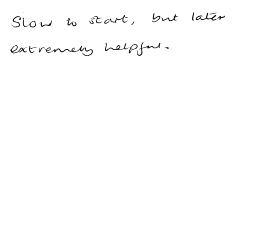 Slow to start, but later
extremely helpful.